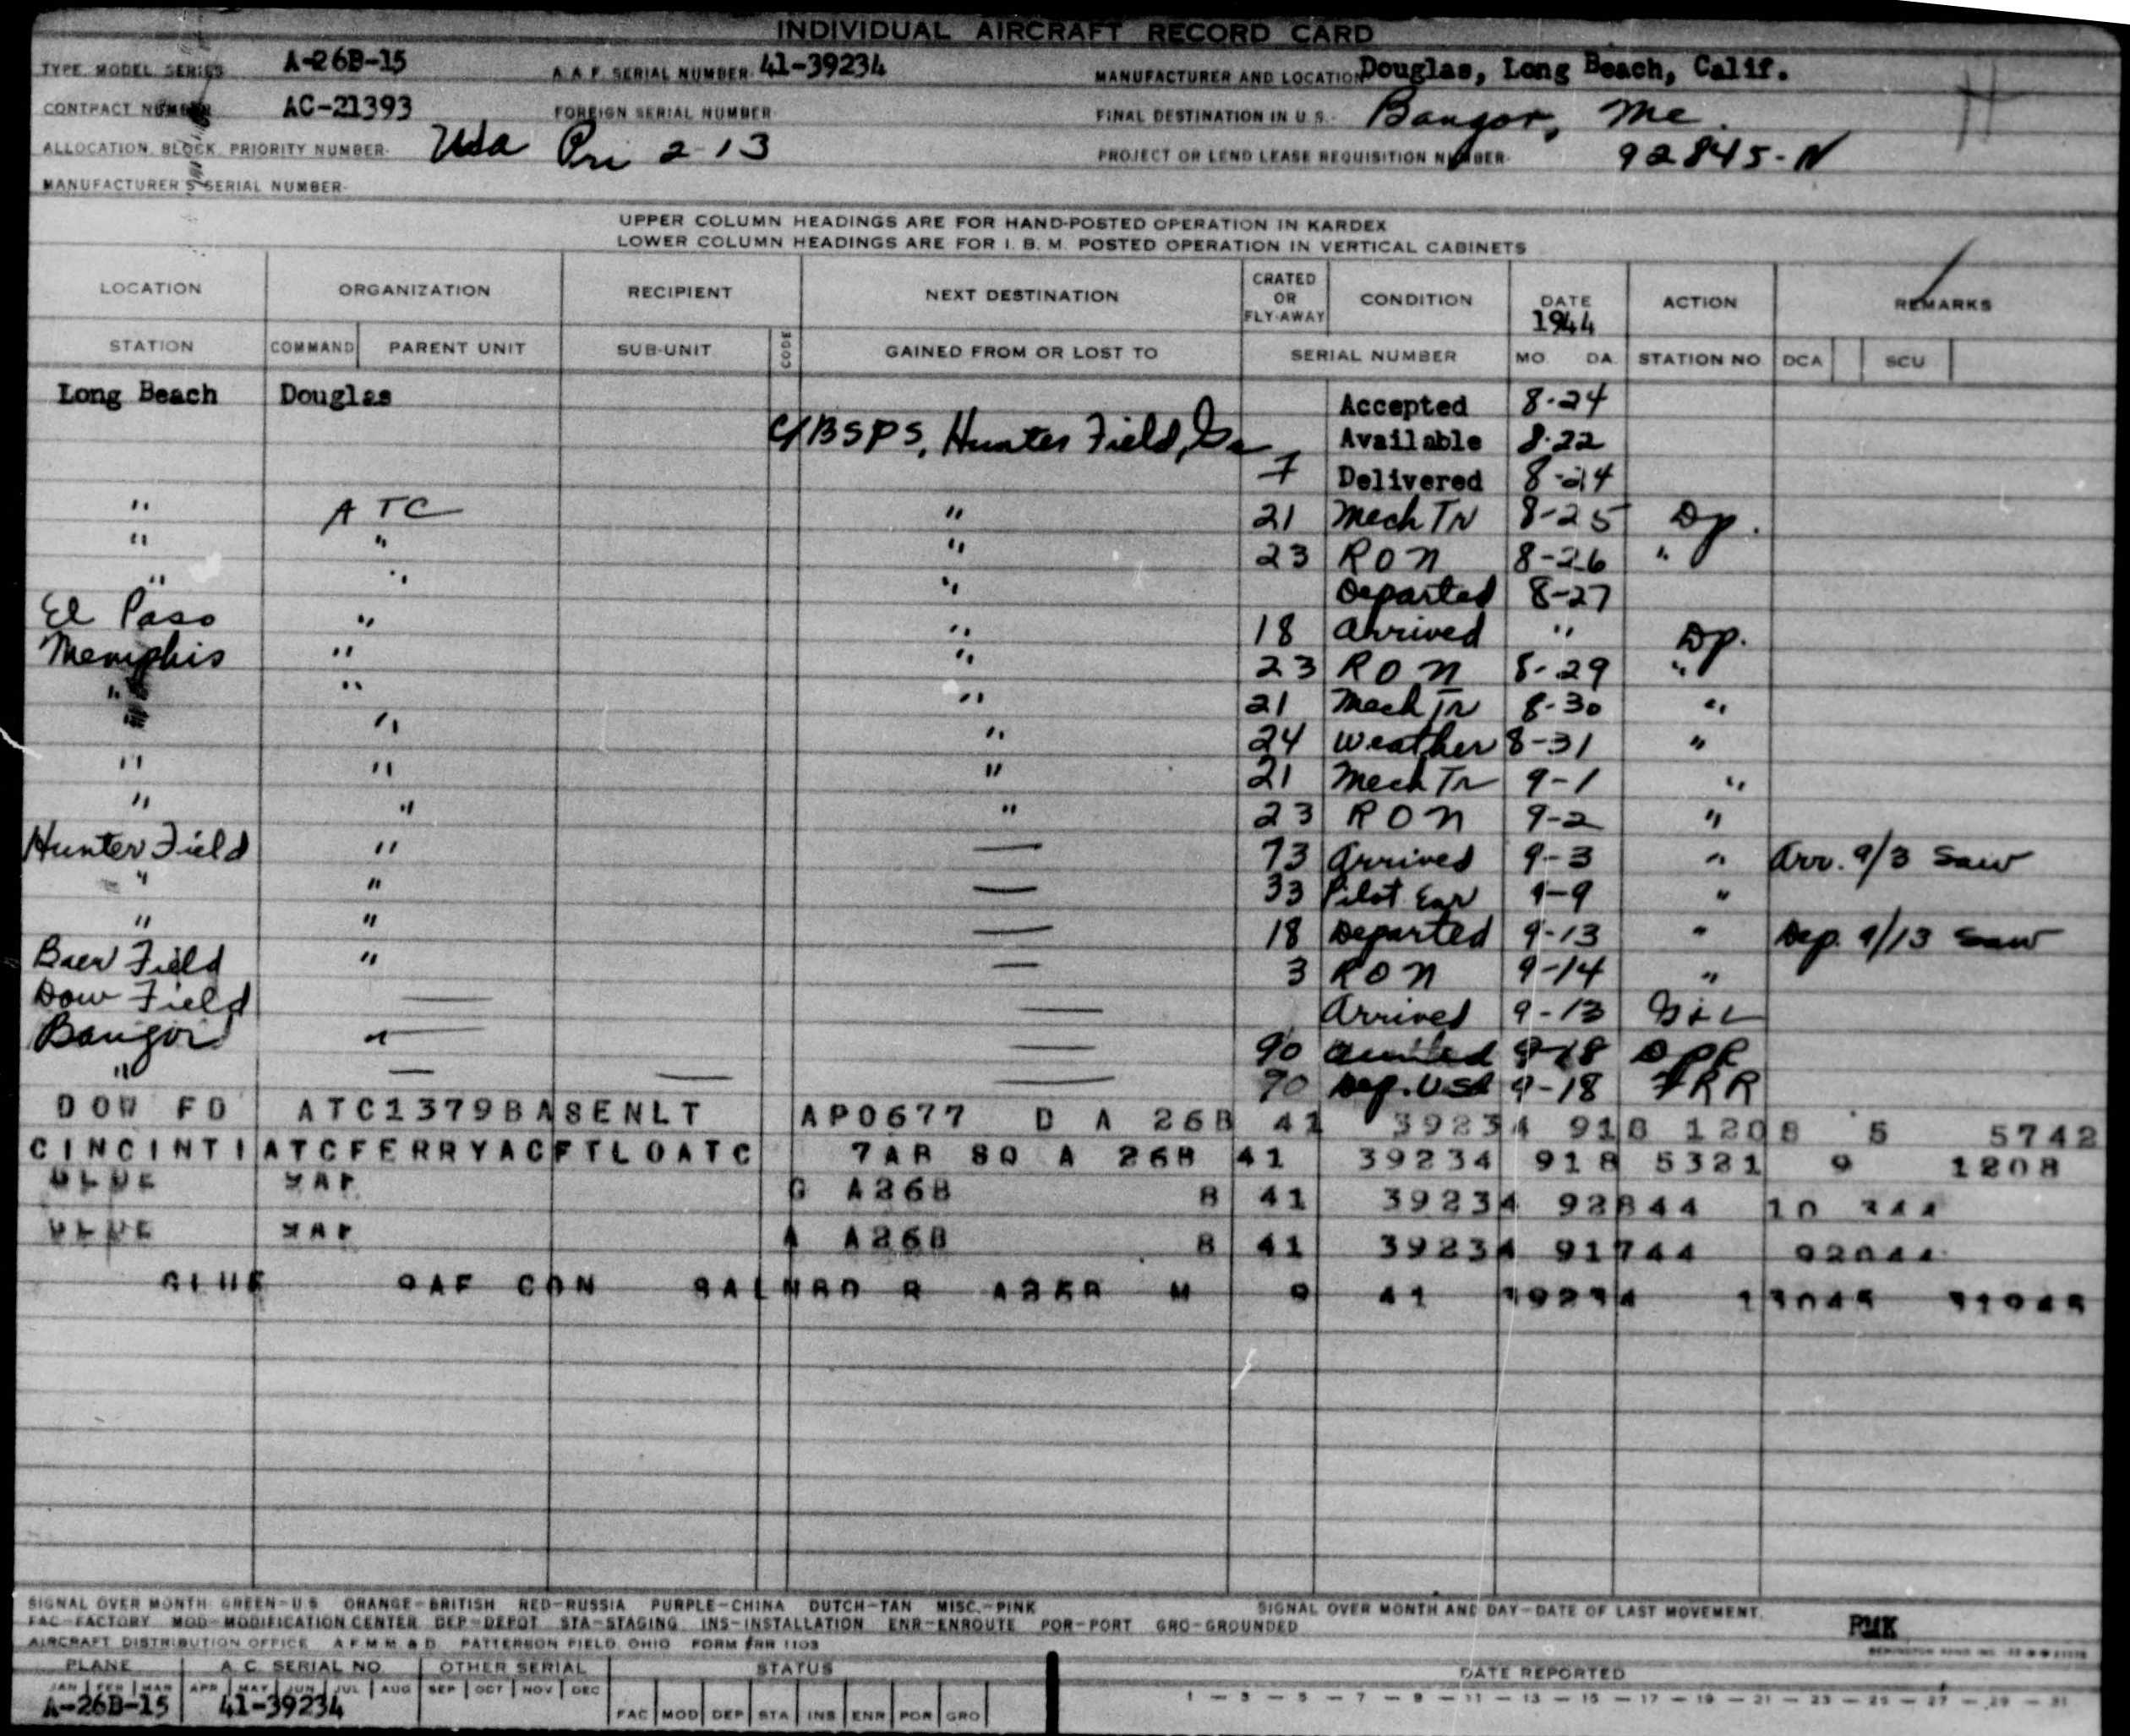 INDIVIDUAL AIRCRAFT RECORD CARD
TYPE MODEL SERIES A-26B-15 A.A.F. SERIAL NUMBER 41-39234 MANUFACTURER AND LOCATION Douglas, Long Beach, Calif.
CONTRACT NUMBER AC-21393 FOREIGN SERIAL NUMBER- FINAL DESTINATION IN U.S.- Bangor, Me.
ALLOCATION, BLOCK, PRIORITY NUMBER- Usa Pri 2-13 PROJECT OR LEND LEASE REQUISITION NUMBER- 92845-N
MANUFACTURER'S SERIAL NUMBER-
UPPER COLUMN HEADINGS ARE FOR HAND-POSTED OPERATION IN KARDEX
LOWER COLUMN HEADINGS ARE FOR I. B. M. POSTED OPERATION IN VERTICAL CABINETS
LOCATION ORGANIZATION RECIPIENT NEXT DESTINATION CRATED OR FLY-AWAY CONDITION DATE 1944 ACTION REMARKS
STATION COMMAND PARENT UNIT SUB-UNIT CODE GAINED FROM OR LOST TO SERIAL NUMBER MO. DA. STATION NO DCA SCU
Long Beach Douglas Accepted 8-24
C/BSPS, Hunter Field, Ga Available 8-22
7 Delivered 8-24
" ATC " 21 Mech Tr 8-25 Dp.
" " " 23 RON 8-26 "
" " " Departed 8-27
El Paso " " 18 Arrived " Dp.
Memphis " " 23 RON 8-29 "
" " " 21 Mech Tr 8-30 "
" " 24 Weather 8-31 "
" " " 21 Mech Tr 9-1 "
" " " 23 RON 9-2 "
Hunter Field " — 73 Arrived 9-3 " Arr. 9/3 Saw
" " — 33 Pilot 9-9 "
" " — 18 Departed 9-13 " Dep. 9/13 Saw
Baer Field " — 3 RON 9-14 "
Dow Field — — Arrived 9-13
Bangor " — — 90 9-18 DPR
" — — — 90 Dep. USA 9-18 FRR
DOW FD ATC1379BASENLT APO677 D A 26B 41 39234 918 1208 5 5742
CINCINTI ATCFERRYACFTLOATC 7AR SQ A 26B 41 39234 918 5321 9 1208
G A26B B 41 39234 92844 10 344
A A26B B 41 39234 91744 92044
GLUE 9AF CON SALNBD R A26B M 9 41 39234 13045 31945
SIGNAL OVER MONTH: GREEN-U.S. ORANGE-BRITISH RED-RUSSIA PURPLE-CHINA DUTCH-TAN MISC.-PINK SIGNAL OVER MONTH AND DAY-DATE OF LAST MOVEMENT.
FAC-FACTORY MOD-MODIFICATION CENTER DEP-DEPOT STA-STAGING INS-INSTALLATION ENR-ENROUTE POR-PORT GRO-GROUNDED RMK
AIRCRAFT DISTRIBUTION OFFICE A.F.M.M. & D. PATTERSON FIELD, OHIO FORM FRR 1103
PLANE A.C. SERIAL NO. OTHER SERIAL STATUS DATE REPORTED
JAN FEB MAR APR MAY JUN JUL AUG SEP OCT NOV DEC 1 - 3 - 5 - 7 - 9 - 11 - 13 - 15 - 17 - 19 - 21 - 23 - 25 - 27 - 29 - 31
A-26B-15 41-39234 FAC MOD DEP STA INS ENR POR GRO